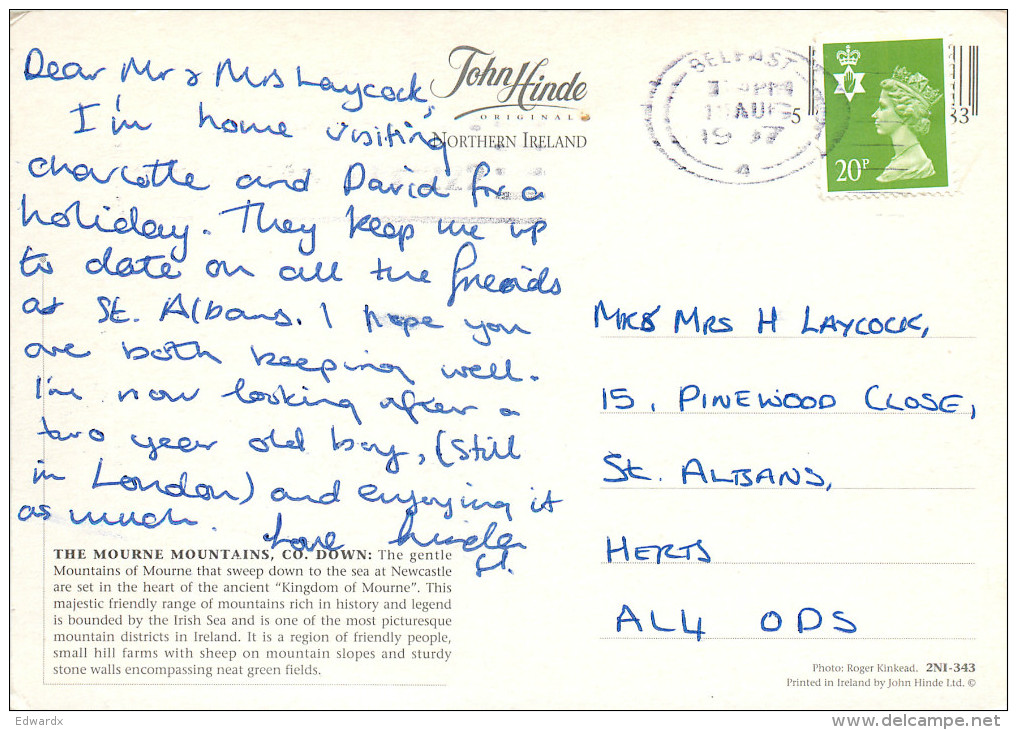 Dear Mr & Mrs Laycock,
I'm home visiting
Charlotte and David for a
holiday. They keep me up
to date on all the friends
at St. Albans. I hope you
are both keeping well.
I'm now looking after a
two year old boy, (still
in London) and enjoying it
as much. Love Linda
John Hinde
ORIGINAL
NORTHERN IRELAND
BELFAST
PM
AUG
19 7
20P
5
33
MR & MRS H LAYCOCK,
15, PINEWOOD CLOSE,
St. ALBANS,
HERTS
AL4 0DS
THE MOURNE MOUNTAINS, CO. DOWN: The gentle
Mountains of Mourne that sweep down to the sea at Newcastle
are set in the heart of the ancient "Kingdom of Mourne". This
majestic friendly range of mountains rich in history and legend
is bounded by the Irish Sea and is one of the most picturesque
mountain districts in Ireland. It is a region of friendly people,
small hill farms with sheep on mountain slopes and sturdy
stone walls encompassing neat green fields.
Photo: Roger Kinkead. 2NI-343
Printed in Ireland by John Hinde Ltd. ©
Edwardx
www.delcampe.net